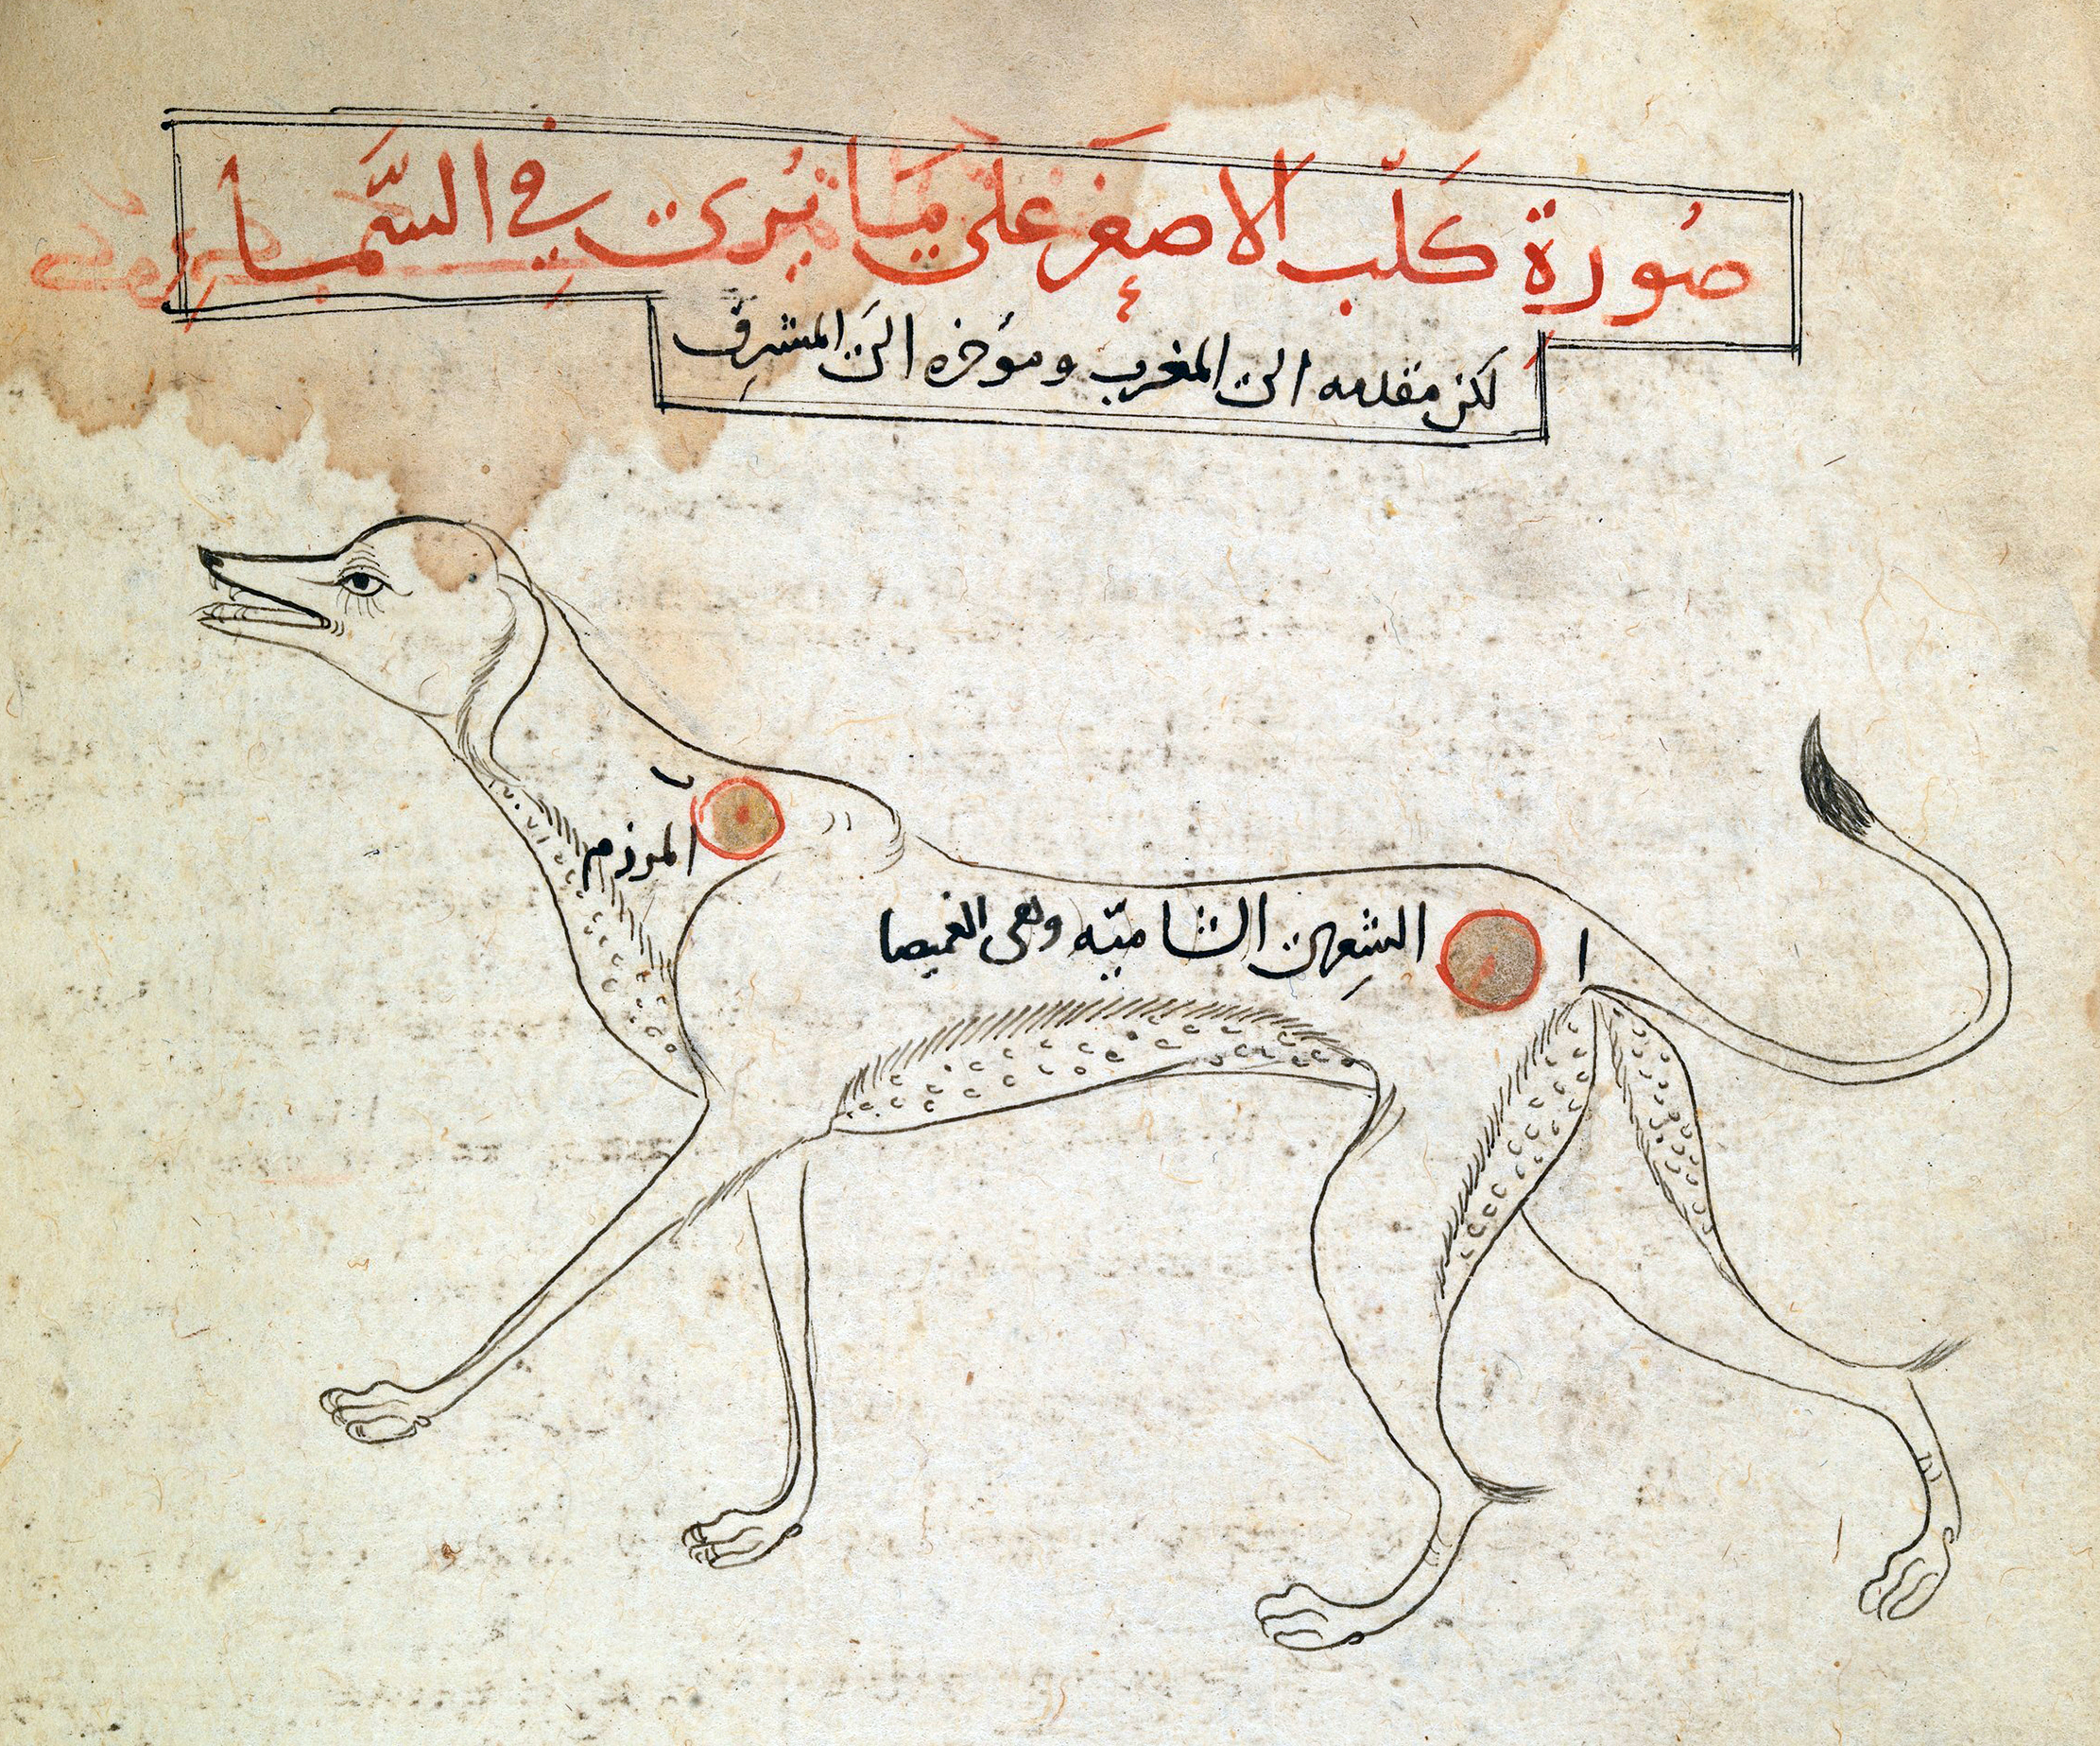 صُورة كَلّب الاصغَر عَلى مَا يُرىٰ فِي السَّمَا
لكن مقدمه الى المغرب ومؤخره الىَ المشرِق
ب
المرزم
ا
الشِعرىٰ الشاميّه وهى الغميصا